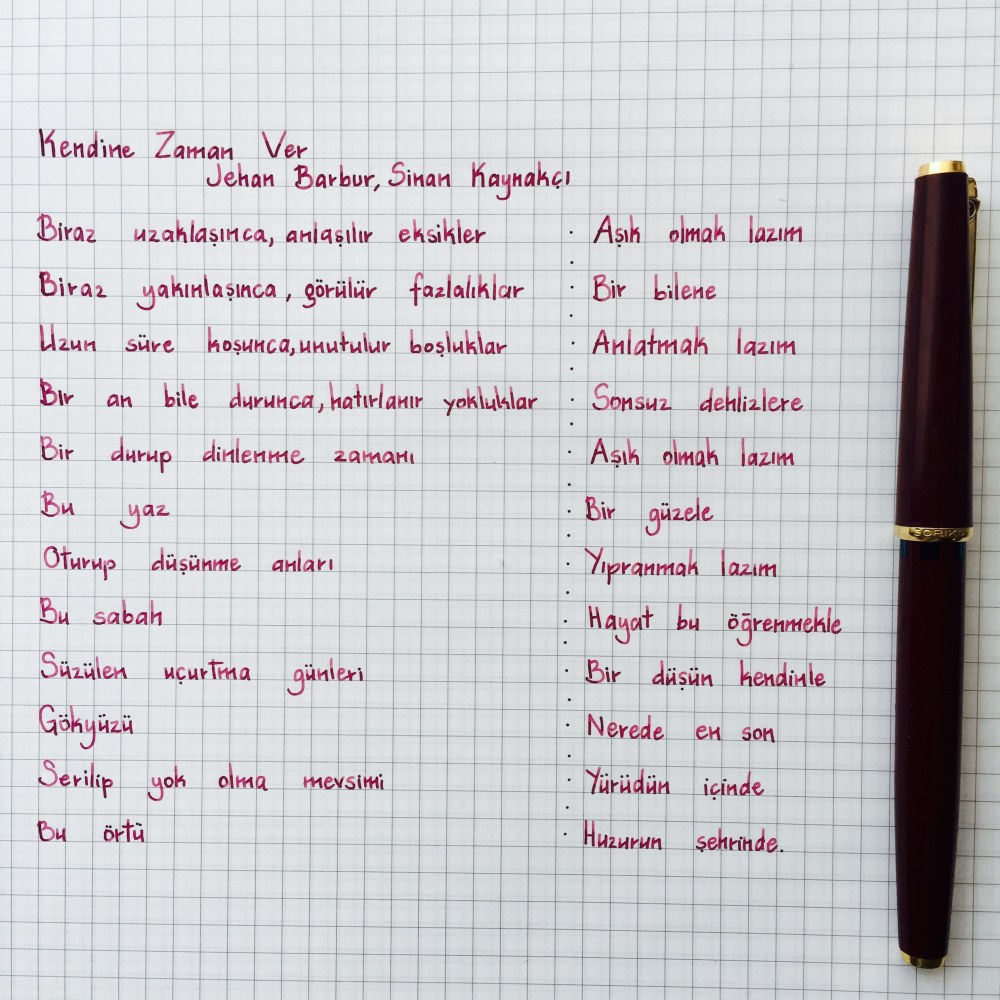 Kendine Zaman Ver
Jehan Barbur, Sinan Kaynakçı
Biraz uzaklaşınca, anlaşılır eksikler
Biraz yakınlaşınca, görülür fazlalıklar
Uzun süre koşunca, unutulur boşluklar
Bir an bile durunca, hatırlanır yokluklar
Bir durup dinlenme zamanı
Bu yaz
Oturup düşünme anları
Bu sabah
Süzülen uçurtma günleri
Gökyüzü
Serilip yok olma mevsimi
Bu örtü
Aşık olmak lazım
Bir bilene
Anlatmak lazım
Sonsuz dehlizlere
Aşık olmak lazım
Bir güzele
Yıpranmak lazım
Hayat bu öğrenmekle
Bir düşün kendinle
Nerede en son
Yürüdün içinde
Huzurun şehrinde.